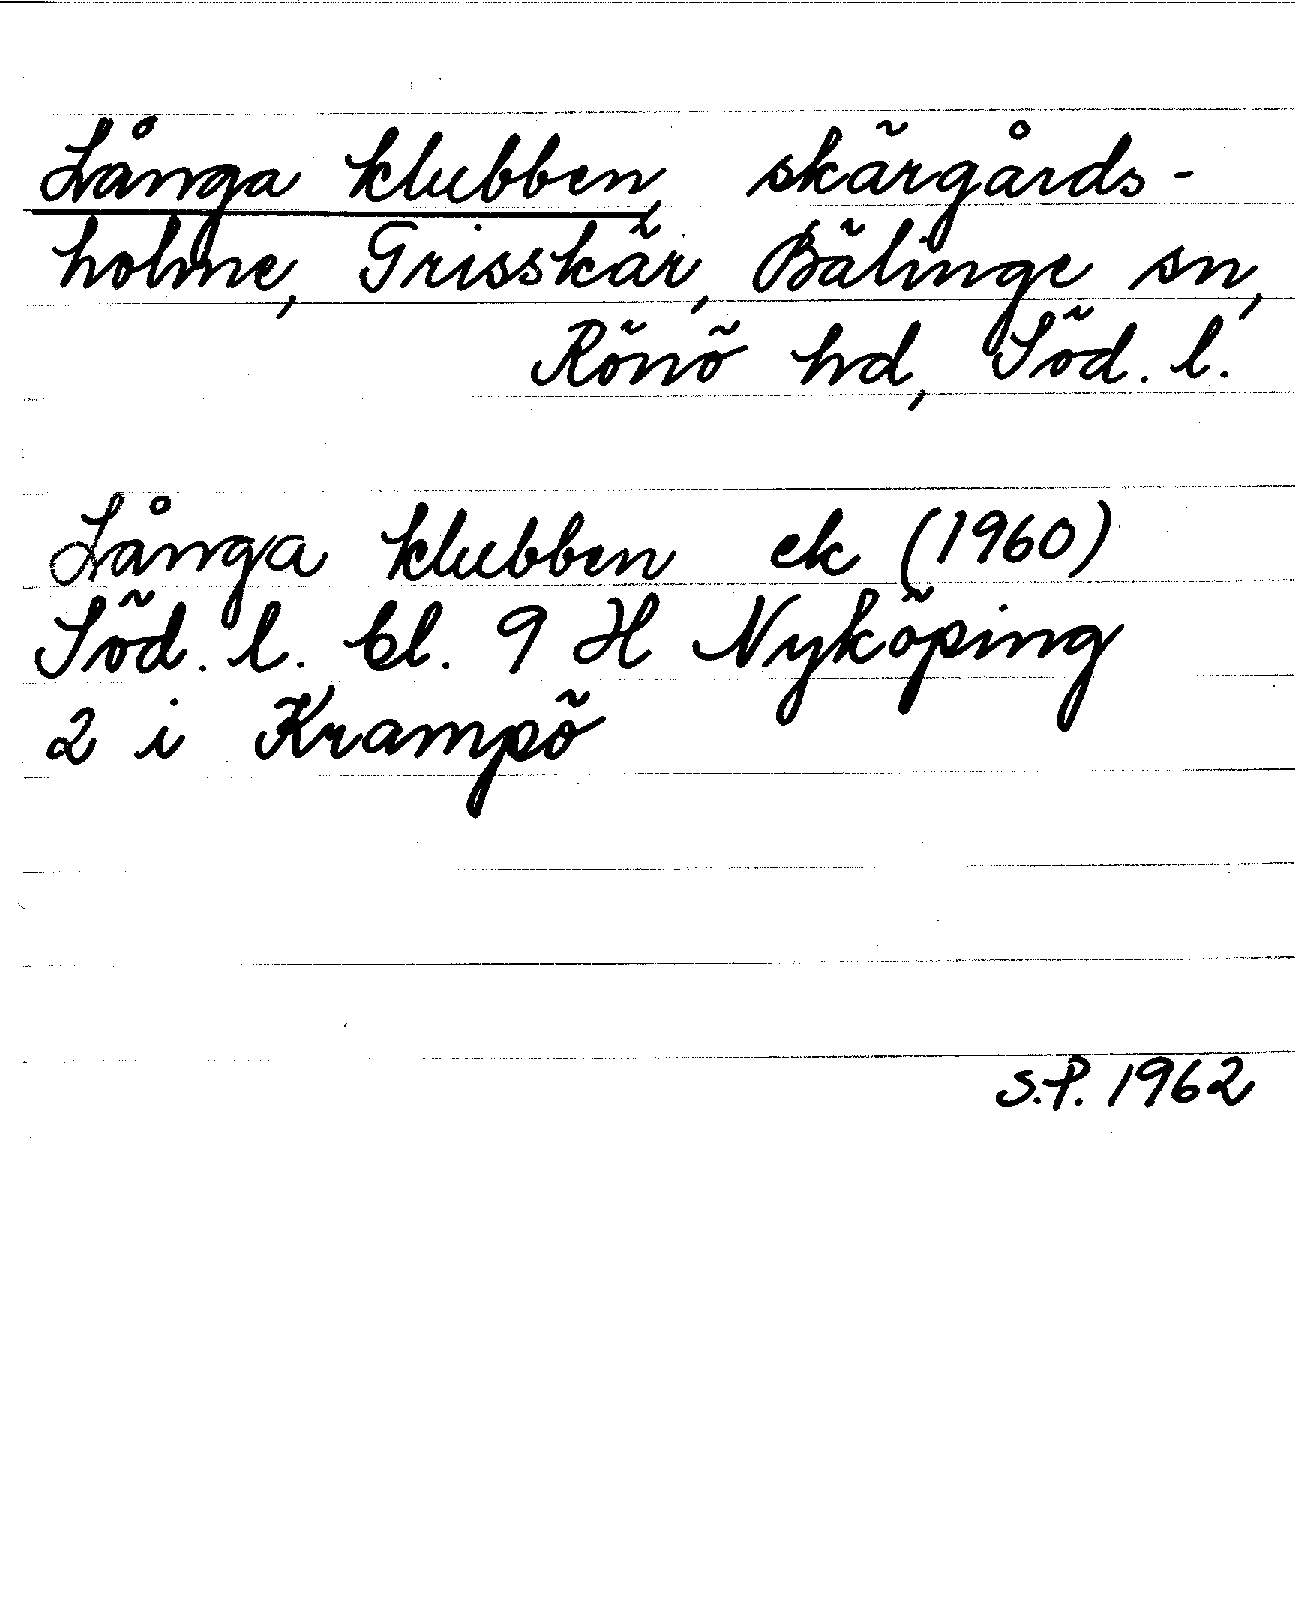 Långa klubben, skärgårds-
holme, Grisskär, Bälinge sn,
Rönö hd, Söd. l.
Långa klubben ek (1960)
Söd. l. bl. 9 H Nyköping
2 i Krampö
S.P. 1962